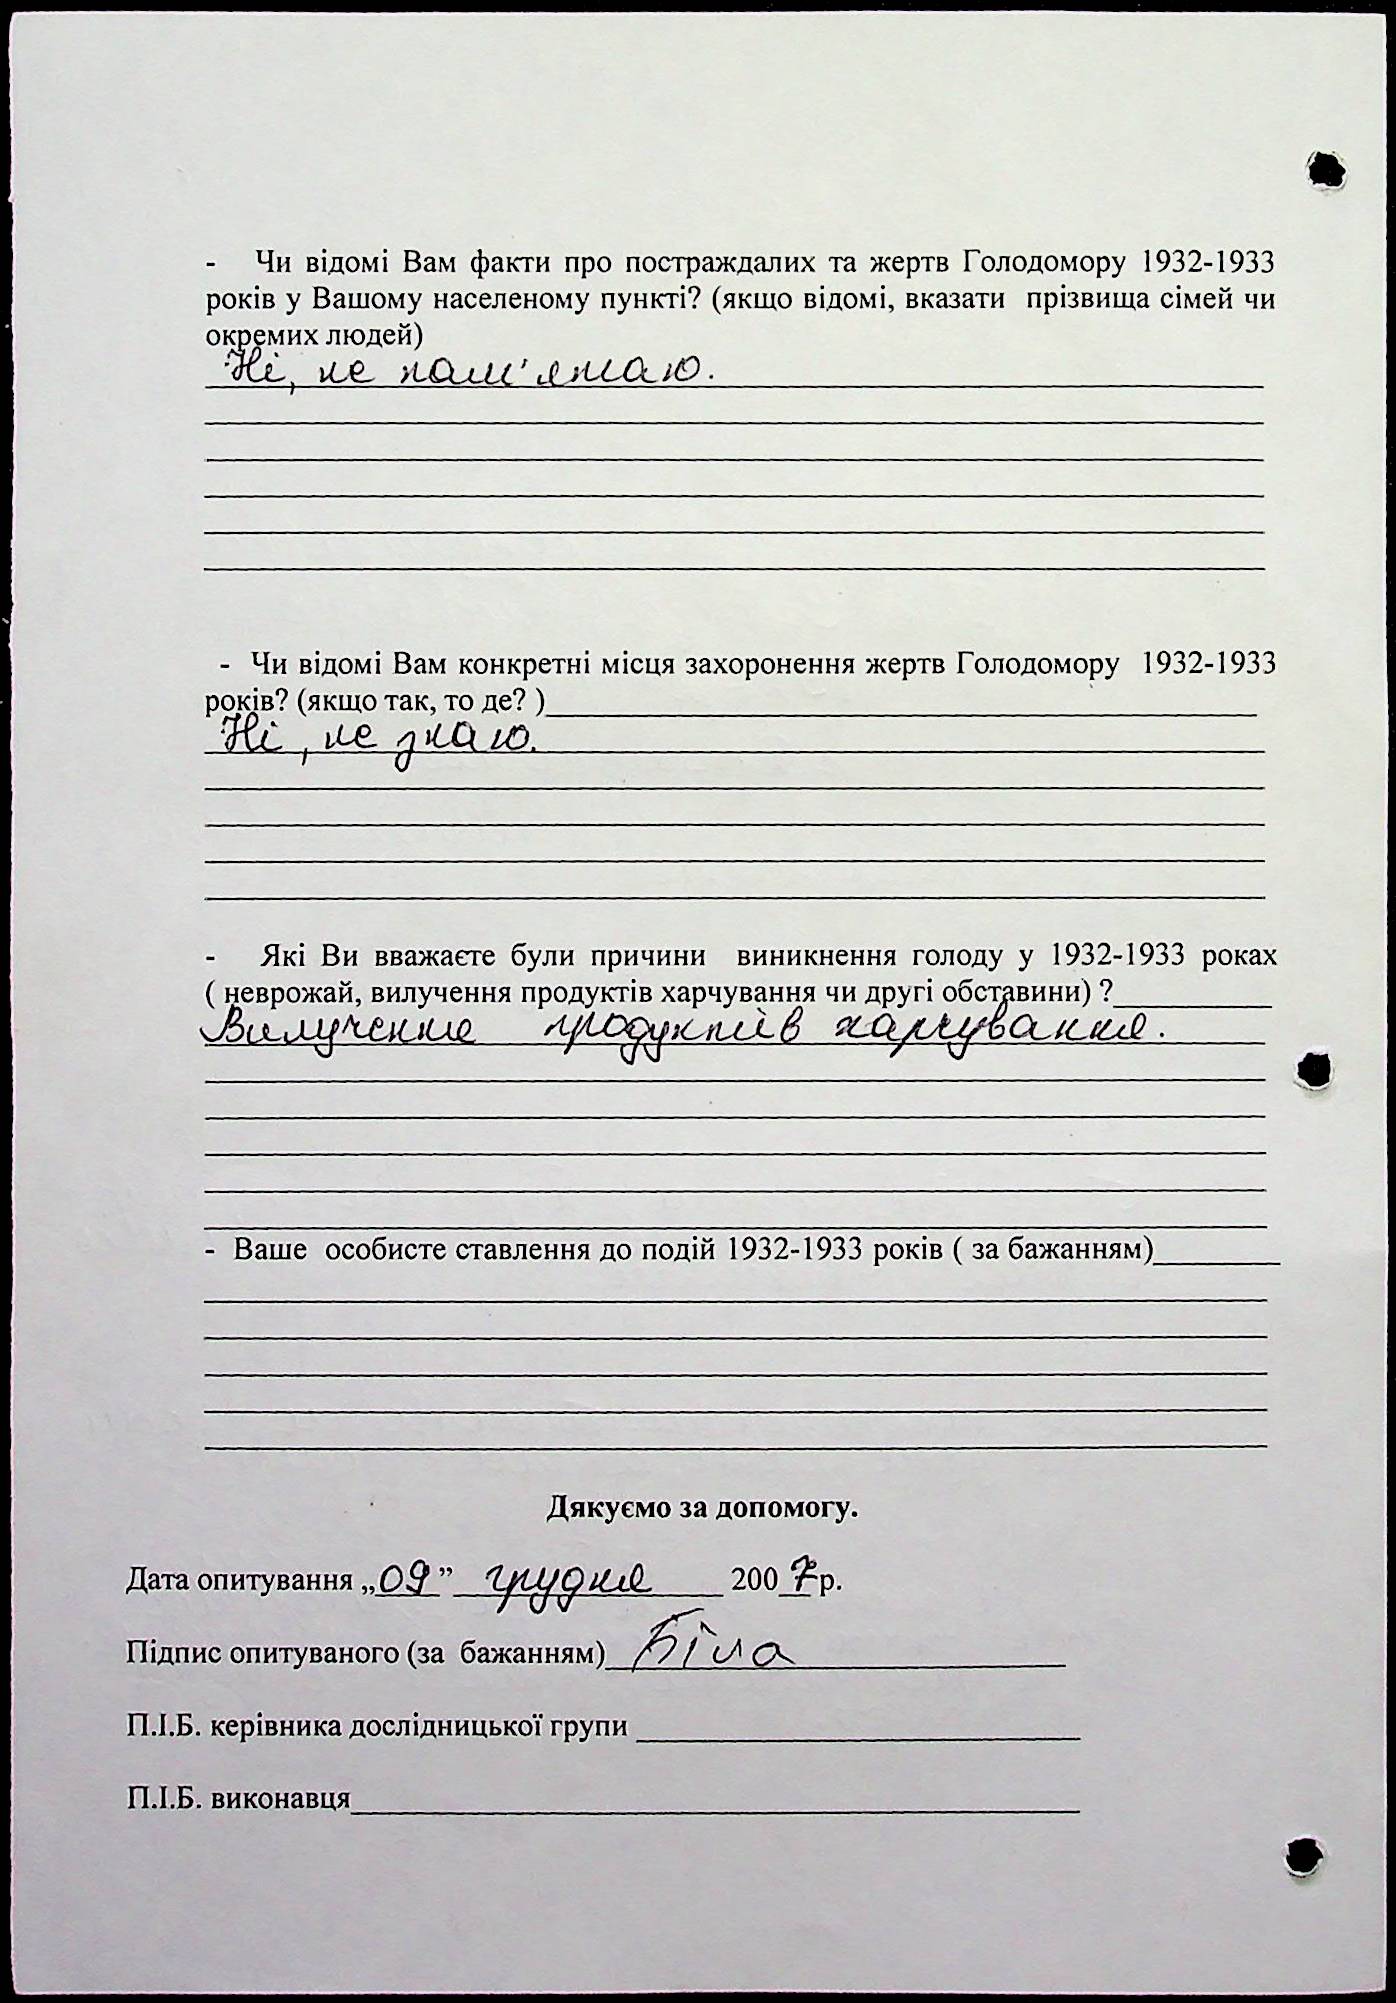 - Чи відомі Вам факти про постраждалих та жертв Голодомору 1932-1933
років у Вашому населеному пункті? (якщо відомі, вказати прізвища сімей чи
окремих людей)
Ні, не пам'ятаю.
- Чи відомі Вам конкретні місця захоронення жертв Голодомору 1932-1933
років? (якщо так, то де? )
Ні, не знаю.
- Які Ви вважаєте були причини виникнення голоду у 1932-1933 роках
( неврожай, вилучення продуктів харчування чи другі обставини) ?
Вилучення продуктів харчування.
- Ваше особисте ставлення до подій 1932-1933 років ( за бажанням)
Дякуємо за допомогу.
Дата опитування „09” грудня 2007р.
Підпис опитуваного (за бажанням) Біла
П.І.Б. керівника дослідницької групи
П.І.Б. виконавця